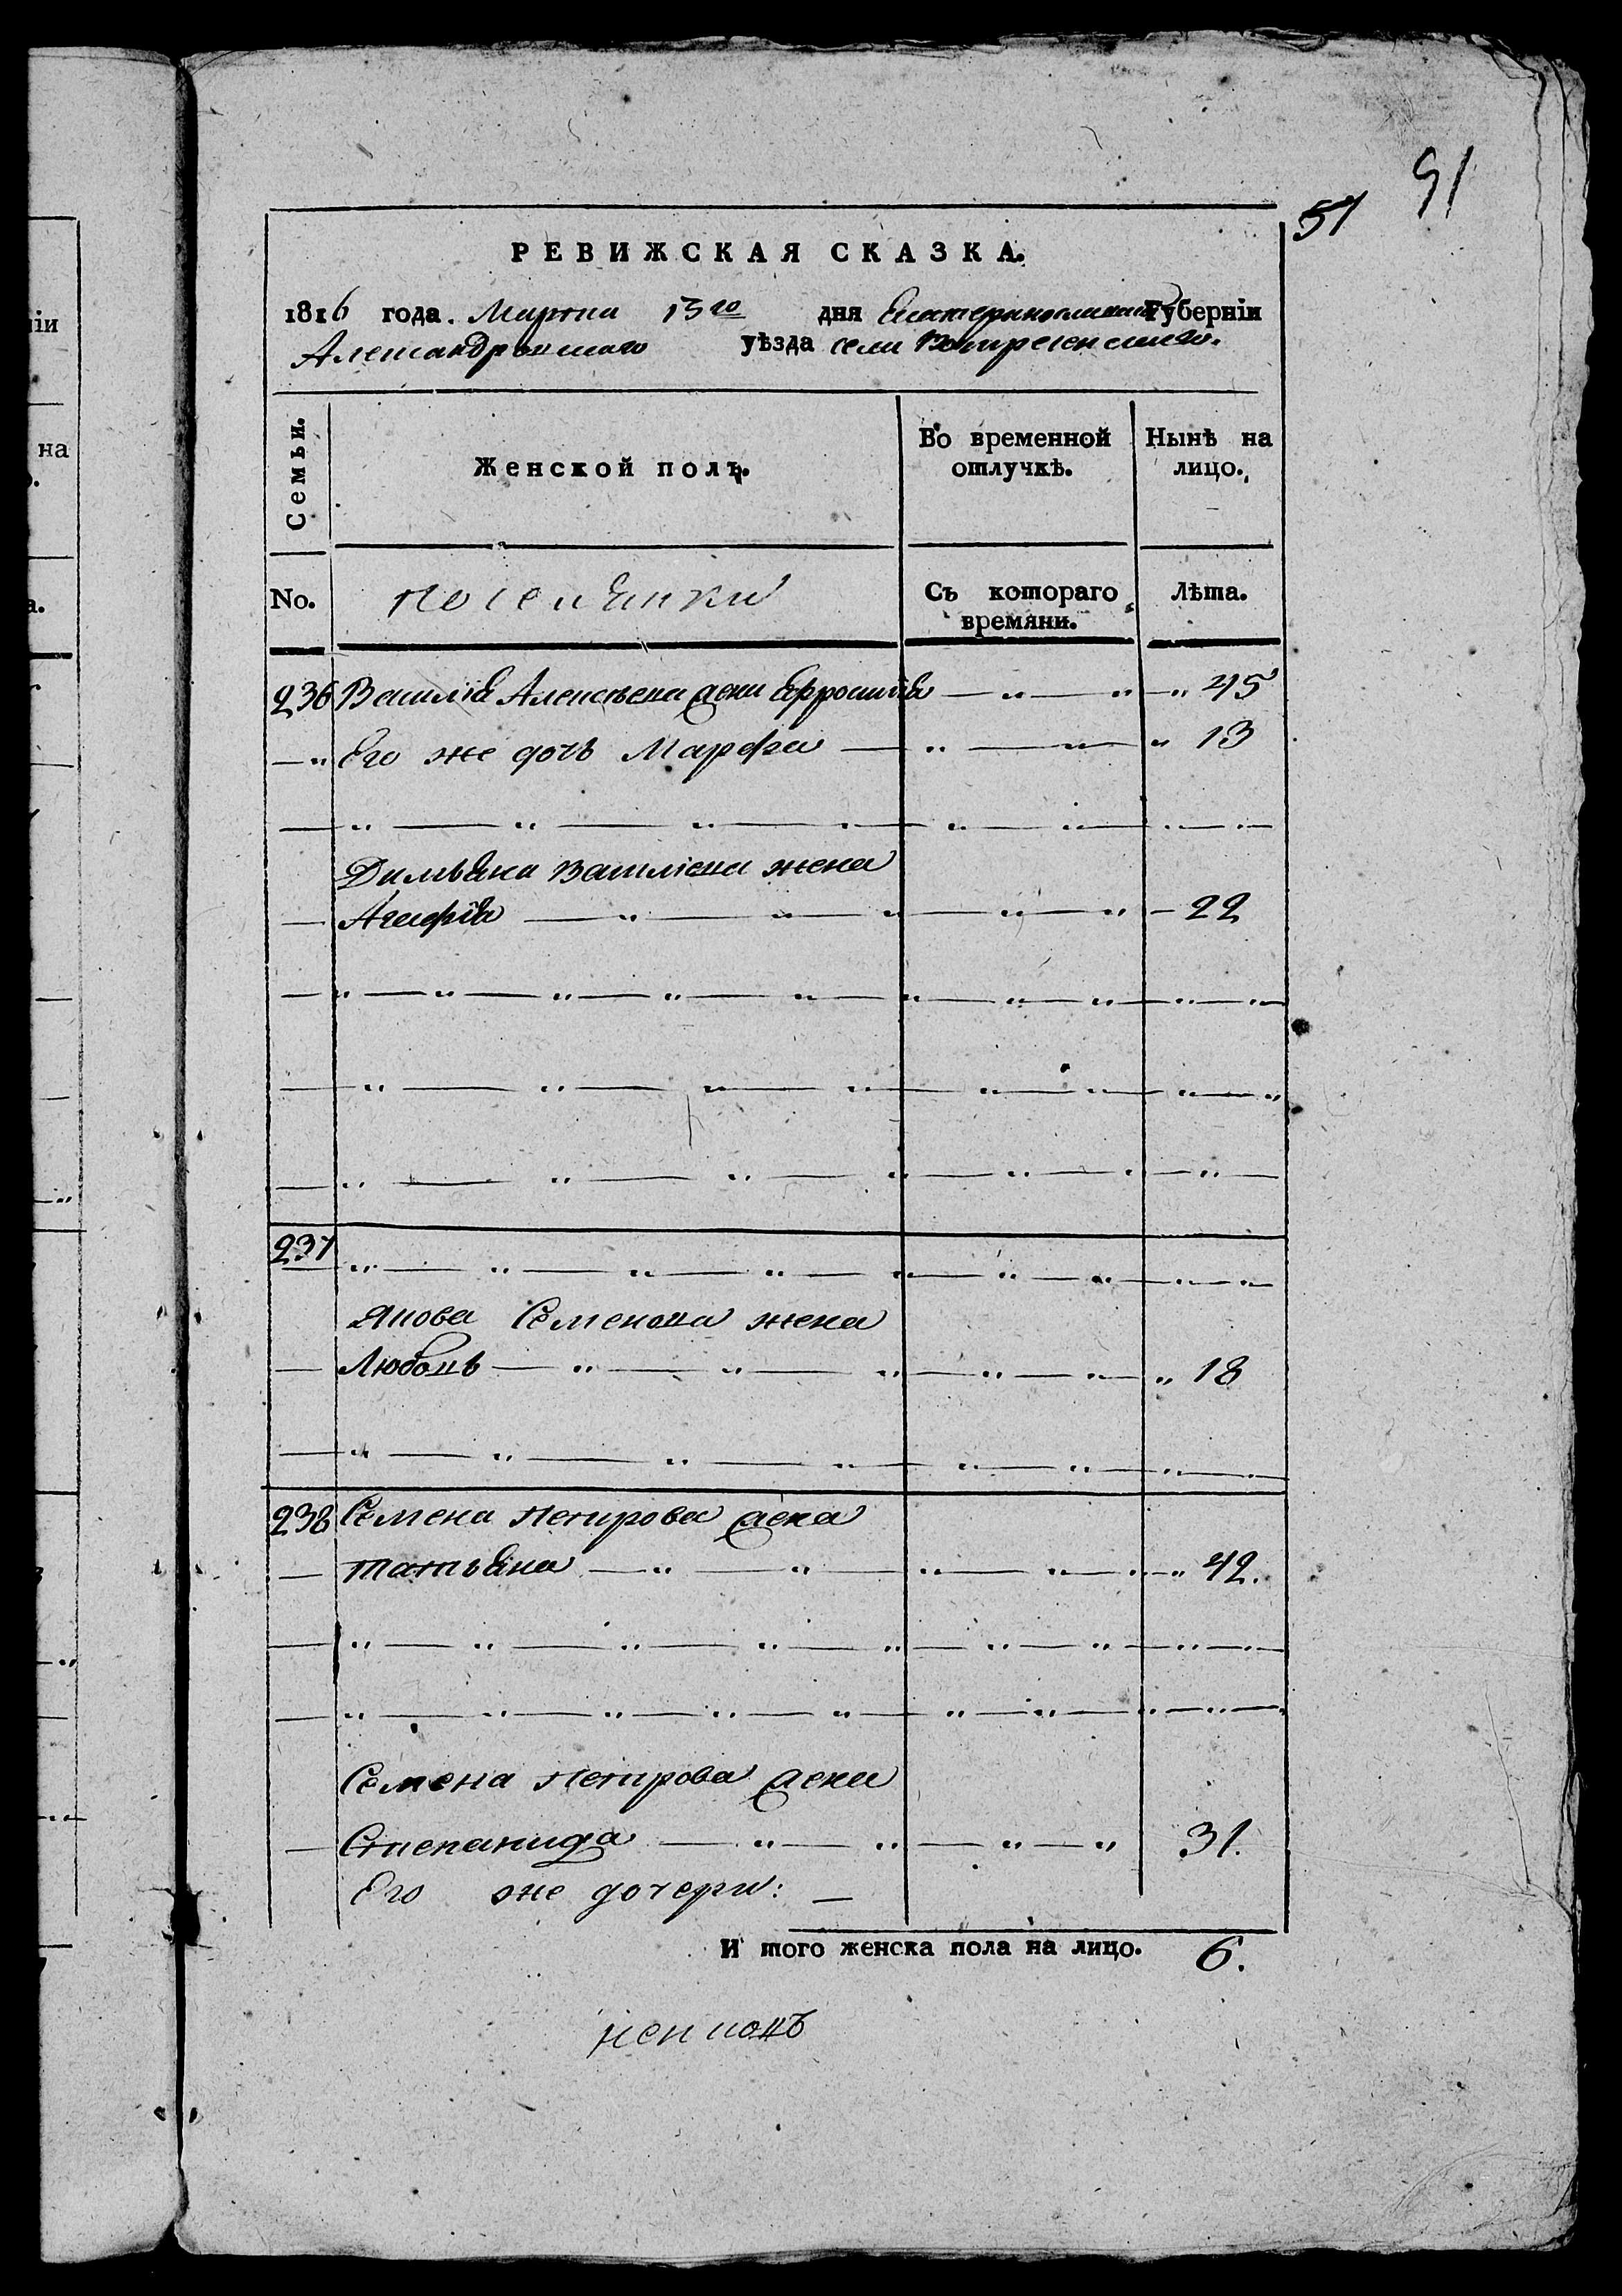 91
51
РЕВИЖСКАЯ СКАЗКА.
1816 года. Марта 13го дня Екатеринославской Губерніи
Александровскаго уѣзда села Воскресенскаго.
Семьи. Женской полъ. Во временной отлучкѣ. Нынѣ на лицо.
No. поселянки Съ котораго времяни. Лѣта.
236 Василія Алексѣева жена Ефросинія — „ — „ — „ 45
— „ Его же дочь Марфа — „ — „ — „ 13
Дилиѣна Василіева жена
— Агафія — „ — „ — „ — „ — „ — 22
237
Якова Семенова жена
— Любовь — „ — „ — „ — „ — „ — „ 18
238 Семена Петрова жена
— Татьяна — „ — „ — „ — „ — „ — „ 42.
Семена Петрова жена
— Степанида — „ — „ — „ — „ 31.
Его же дочери: —
И того женска пола на лицо. 6.